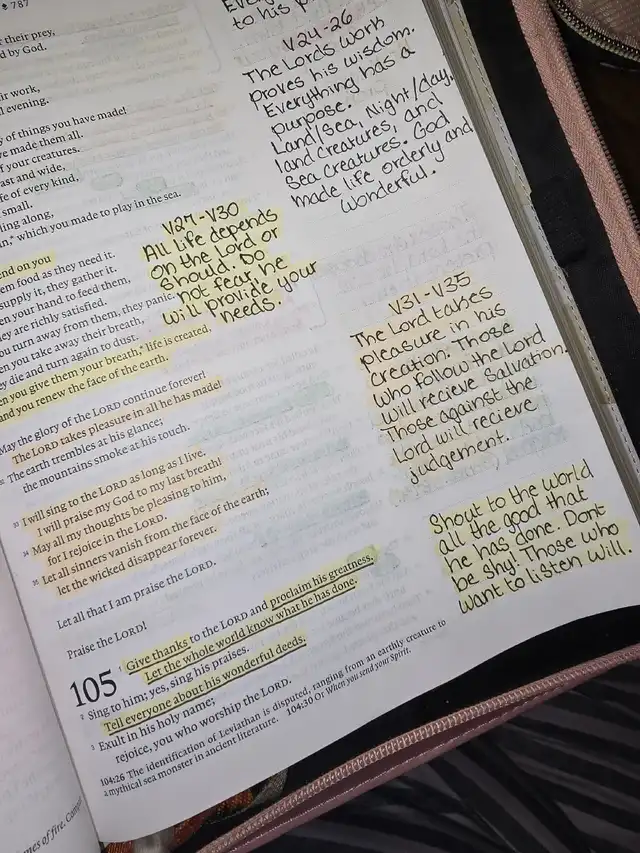 787
to his
V24-26
The Lords work
proves his wisdom.
Everything has a
purpose.
Land/Sea, Night/day,
land creatures, and
Sea creatures. God
made life orderly and
Wonderful.
their prey,
by God.
work,
evening.
of things you have made!
made them all.
of your creatures.
and wide,
of every kind,
small.
along,
which you made to play in the sea.
V27-V30
All life depends
on the Lord or
should. Do
not fear he
will provide your
needs.
on you
food as they need it.
supply it, they gather it.
your hand to feed them,
are richly satisfied.
turn away from them, they panic.
you take away their breath,
die and turn again to dust.
you give them your breath,* life is created,
and you renew the face of the earth.
May the glory of the LORD continue forever!
The LORD takes pleasure in all he has made!
The earth trembles at his glance;
the mountains smoke at his touch.
33 I will sing to the LORD as long as I live.
I will praise my God to my last breath!
34 May all my thoughts be pleasing to him,
for I rejoice in the LORD.
35 Let all sinners vanish from the face of the earth;
let the wicked disappear forever.
Let all that I am praise the LORD.
Praise the LORD!
V31-V35
The Lord takes
pleasure in his
creation. Those
who follow the Lord
will recieve Salvation.
Those against the
Lord will recieve
judgement.
Shout to the world
all the good that
he has done. Dont
be shy! Those who
want to listen will.
105 1 Give thanks to the LORD and proclaim his greatness.
Let the whole world know what he has done.
2 Sing to him; yes, sing his praises.
Tell everyone about his wonderful deeds.
3 Exult in his holy name;
rejoice, you who worship the LORD.
104:26 The identification of Leviathan is disputed, ranging from an earthly creature to
a mythical sea monster in ancient literature. 104:30 Or When you send your Spirit.
of fire.